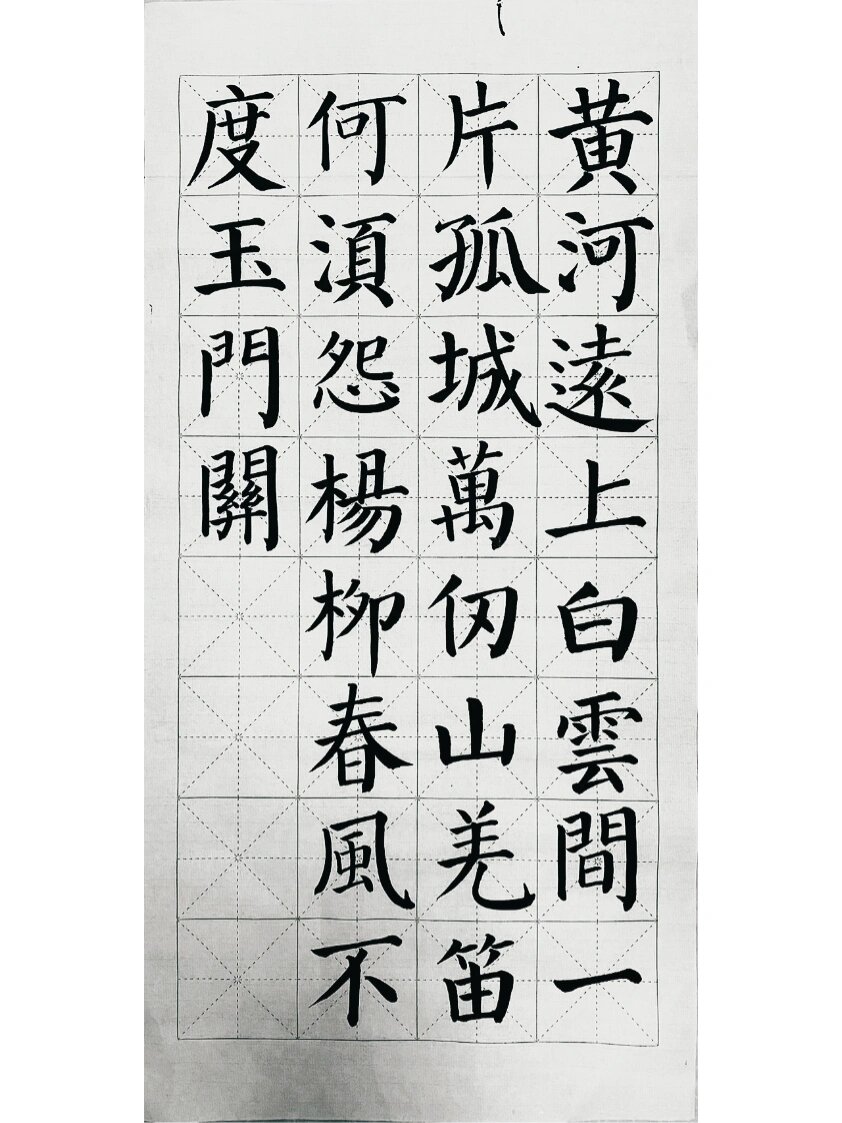 黄河遠上白雲間一
片孤城萬仞山羌笛
何湏怨楊柳春風不
度玉門關